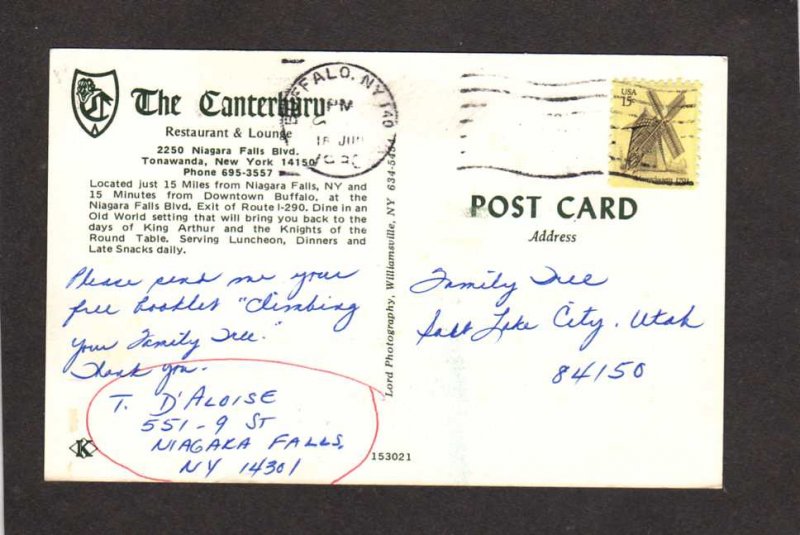 The Canterbury
Restaurant & Lounge
2250 Niagara Falls Blvd.
Tonawanda, New York 14150
Phone 695-3557
Located just 15 Miles from Niagara Falls, NY and
15 Minutes from Downtown Buffalo, at the
Niagara Falls Blvd. Exit of Route I-290. Dine in an
Old World setting that will bring you back to the
days of King Arthur and the Knights of the
Round Table. Serving Luncheon, Dinners and
Late Snacks daily.
Please send me your
free booklet "Climbing
your Family Tree."
Thank you.
T. D'ALOISE
551-9 ST
NIAGARA FALLS,
NY 14301
K
153021
BUFFALO, NY 140
PM
Lord Photography, Williamsville, NY 634-5454
USA
15c
POST CARD
Address
Family Tree
Salt Lake City, Utah
84150